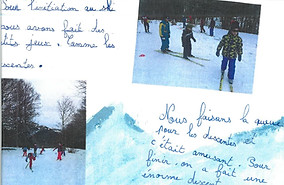 l'initiation au ski
ous avons fait des
tits jeux. Comme les
scentes.
Nous faisons la queue
pour les descentes et
c'était amusant. Pour
finir, on a fait une
énorme